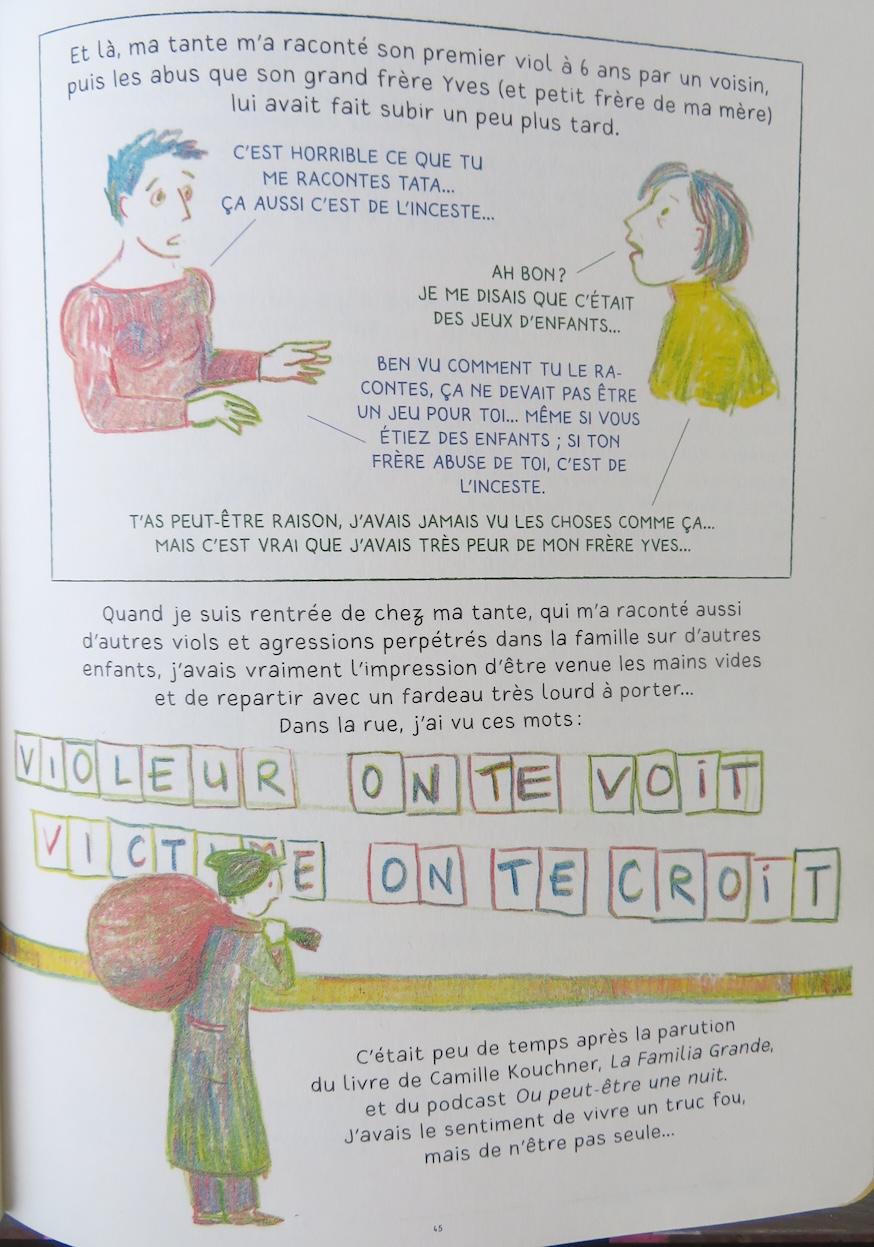 Et là, ma tante m'a raconté son premier viol à 6 ans par un voisin,
puis les abus que son grand frère Yves (et petit frère de ma mère)
lui avait fait subir un peu plus tard.
C'EST HORRIBLE CE QUE TU
ME RACONTES TATA...
ÇA AUSSI C'EST DE L'INCESTE...
AH BON?
JE ME DISAIS QUE C'ÉTAIT
DES JEUX D'ENFANTS...
BEN VU COMMENT TU LE RA-
CONTES, ÇA NE DEVAIT PAS ÊTRE
UN JEU POUR TOI... MÊME SI VOUS
ÉTIEZ DES ENFANTS ; SI TON
FRÈRE ABUSE DE TOI, C'EST DE
L'INCESTE.
T'AS PEUT-ÊTRE RAISON, J'AVAIS JAMAIS VU LES CHOSES COMME ÇA...
MAIS C'EST VRAI QUE J'AVAIS TRÈS PEUR DE MON FRÈRE YVES...
Quand je suis rentrée de chez ma tante, qui m'a raconté aussi
d'autres viols et agressions perpétrés dans la famille sur d'autres
enfants, j'avais vraiment l'impression d'être venue les mains vides
et de repartir avec un fardeau très lourd à porter...
Dans la rue, j'ai vu ces mots:
VIOLEUR ON TE VOiT
VICTIME ON TE CROiT
C'était peu de temps après la parution
du livre de Camille Kouchner, La Familia Grande,
et du podcast Ou peut-être une nuit.
J'avais le sentiment de vivre un truc fou,
mais de n'être pas seule...
45